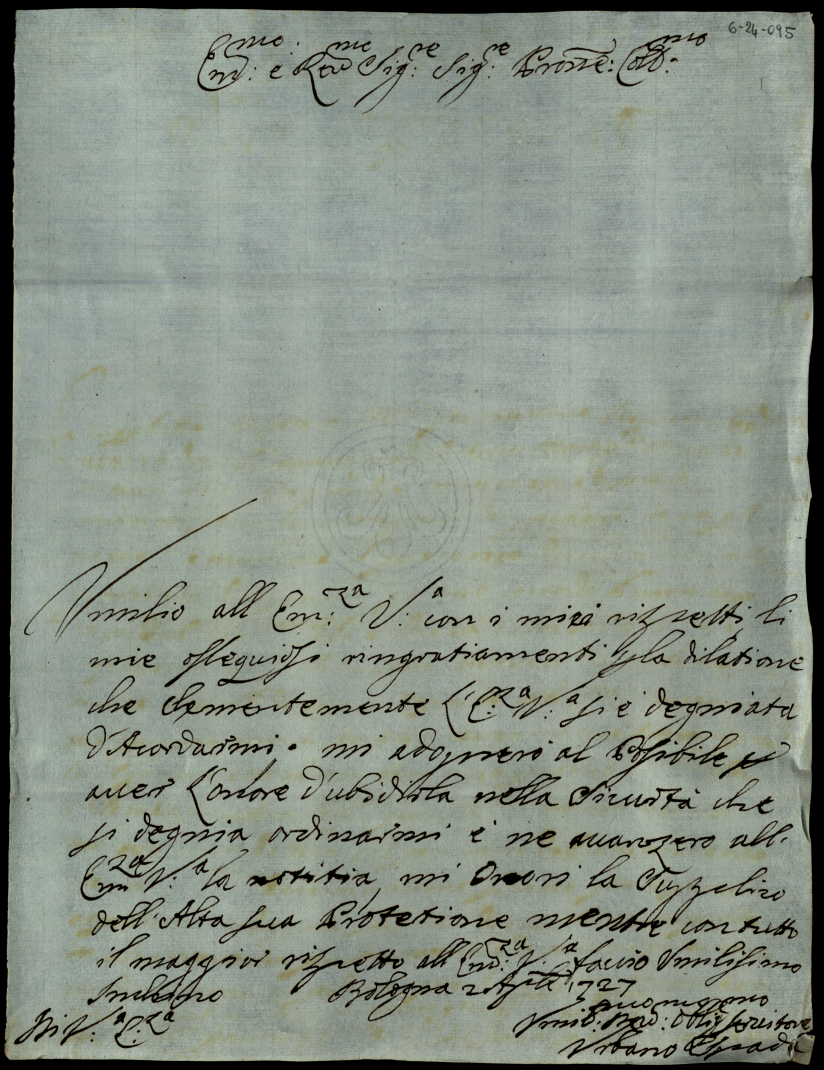 6-24-095
Em:mo e Rev:mo Sig:re Sig:re Prone: Coll:mo
Vmilio all Em:za V:a con i miei rispetti li
mie ossequiosi ringratiamenti p la dilatione
che Clementemente L'E:za V:a si è degniata
d'Acordarmi. mi adopnerò al Possibile p
aver L'onore d'ubidirla nella Sicurtà che
si degnia ordinarmi e ne avanzero all.
Em:za V:a la notitia, mi Onori la Suppelico
dell'Alta sua Protetione mentre con tutto
il maggior rispetto all Em:za V:a faccio Vmilissimo
Inchino Bologna 2 1727
Di V:a E:za
Vmil:mo Dev:mo Oblig:mo Servitore
Vrbano